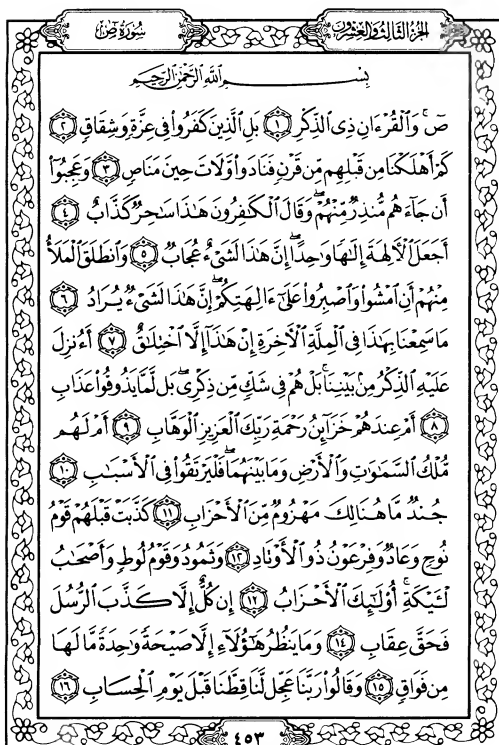 الجزء الثالث والعشرون سورة ص
بِسْمِ ٱللَّهِ ٱلرَّحْمَٰنِ ٱلرَّحِيمِ
صٓۚ وَٱلْقُرْءَانِ ذِى ٱلذِّكْرِ ١ بَلِ ٱلَّذِينَ كَفَرُوا۟ فِى عِزَّةٍ وَشِقَاقٍ ٢
كَمْ أَهْلَكْنَا مِن قَبْلِهِم مِّن قَرْنٍ فَنَادَوا۟ وَّلَاتَ حِينَ مَنَاصٍ ٣ وَعَجِبُوٓا۟
أَن جَآءَهُم مُّنذِرٌ مِّنْهُمْۖ وَقَالَ ٱلْكَٰفِرُونَ هَٰذَا سَٰحِرٌ كَذَّابٌ ٤
أَجَعَلَ ٱلْءَالِهَةَ إِلَٰهًا وَٰحِدًاۖ إِنَّ هَٰذَا لَشَىْءٌ عُجَابٌ ٥ وَٱنطَلَقَ ٱلْمَلَأُ
مِنْهُمْ أَنِ ٱمْشُوا۟ وَٱصْبِرُوا۟ عَلَىٰٓ ءَالِهَتِكُمْۖ إِنَّ هَٰذَا لَشَىْءٌ يُرَادُ ٦
مَا سَمِعْنَا بِهَٰذَا فِى ٱلْمِلَّةِ ٱلْءَاخِرَةِ إِنْ هَٰذَآ إِلَّا ٱخْتِلَٰقٌ ٧ أَءُنزِلَ
عَلَيْهِ ٱلذِّكْرُ مِنۢ بَيْنِنَاۚ بَلْ هُمْ فِى شَكٍّ مِّن ذِكْرِىۖ بَل لَّمَّا يَذُوقُوا۟ عَذَابِ
٨ أَمْ عِندَهُمْ خَزَآئِنُ رَحْمَةِ رَبِّكَ ٱلْعَزِيزِ ٱلْوَهَّابِ ٩ أَمْ لَهُم
مُّلْكُ ٱلسَّمَٰوَٰتِ وَٱلْأَرْضِ وَمَا بَيْنَهُمَاۖ فَلْيَرْتَقُوا۟ فِى ٱلْأَسْبَٰبِ ١٠
جُندٌ مَّا هُنَالِكَ مَهْزُومٌ مِّنَ ٱلْأَحْزَابِ ١١ كَذَّبَتْ قَبْلَهُمْ قَوْمُ
نُوحٍ وَعَادٌ وَفِرْعَوْنُ ذُو ٱلْأَوْتَادِ ١٢ وَثَمُودُ وَقَوْمُ لُوطٍ وَأَصْحَٰبُ
لْـَٔيْكَةِۚ أُو۟لَٰٓئِكَ ٱلْأَحْزَابُ ١٣ إِن كُلٌّ إِلَّا كَذَّبَ ٱلرُّسُلَ
فَحَقَّ عِقَابِ ١٤ وَمَا يَنظُرُ هَٰٓؤُلَآءِ إِلَّا صَيْحَةً وَٰحِدَةً مَّا لَهَا
مِن فَوَاقٍ ١٥ وَقَالُوا۟ رَبَّنَا عَجِّل لَّنَا قِطَّنَا قَبْلَ يَوْمِ ٱلْحِسَابِ ١٦
٤٥٣